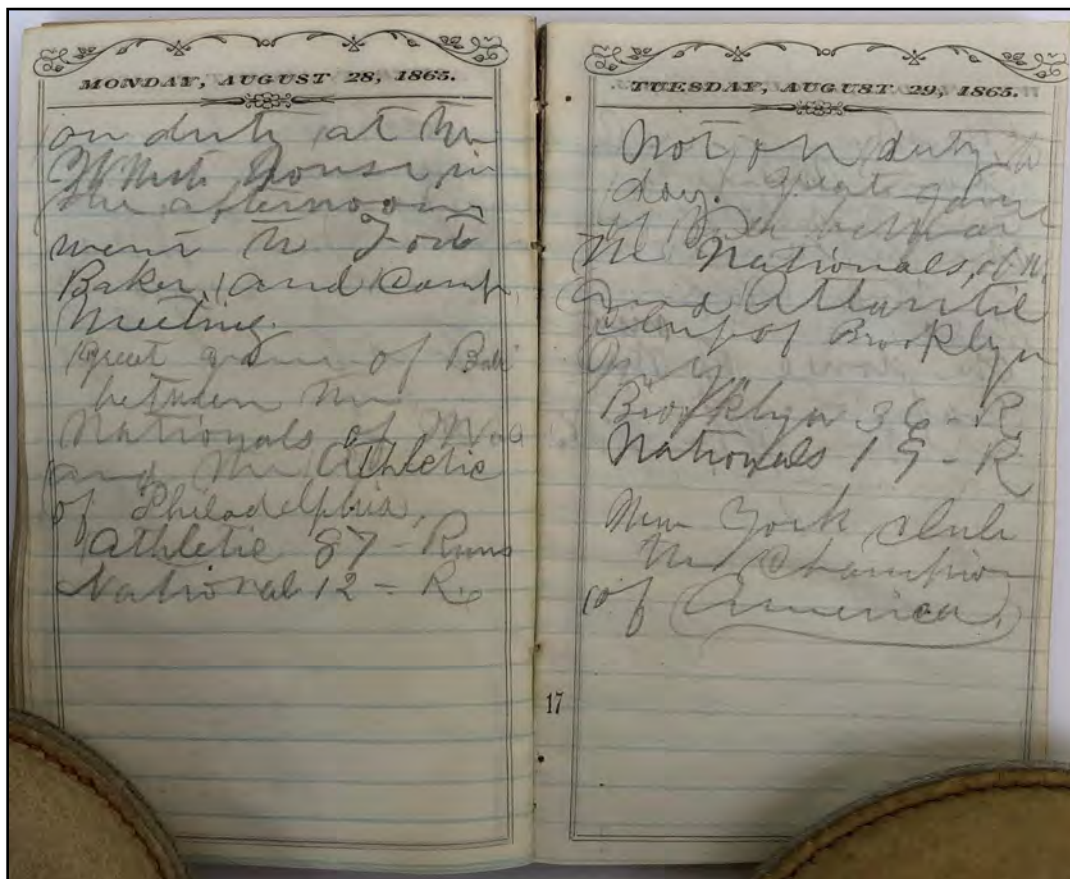 MONDAY, AUGUST 28, 1865.
on duty at the
White House in
the afternoon
went to Fort
Baker, and Camp
Meeting.
great game of Ball
between the
Nationals of Was
and the Athletic
of Philadelphia,
Athletic 87 - Runs
National 12 - R.
TUESDAY, AUGUST 29, 1865.
Not on duty to
day. great game
of Ball between
the Nationals, of W.
and Atlantic
club of Brooklyn
Brooklyn 36 - R.
Nationals 19 - R
New York club
the Champion
of America.
17